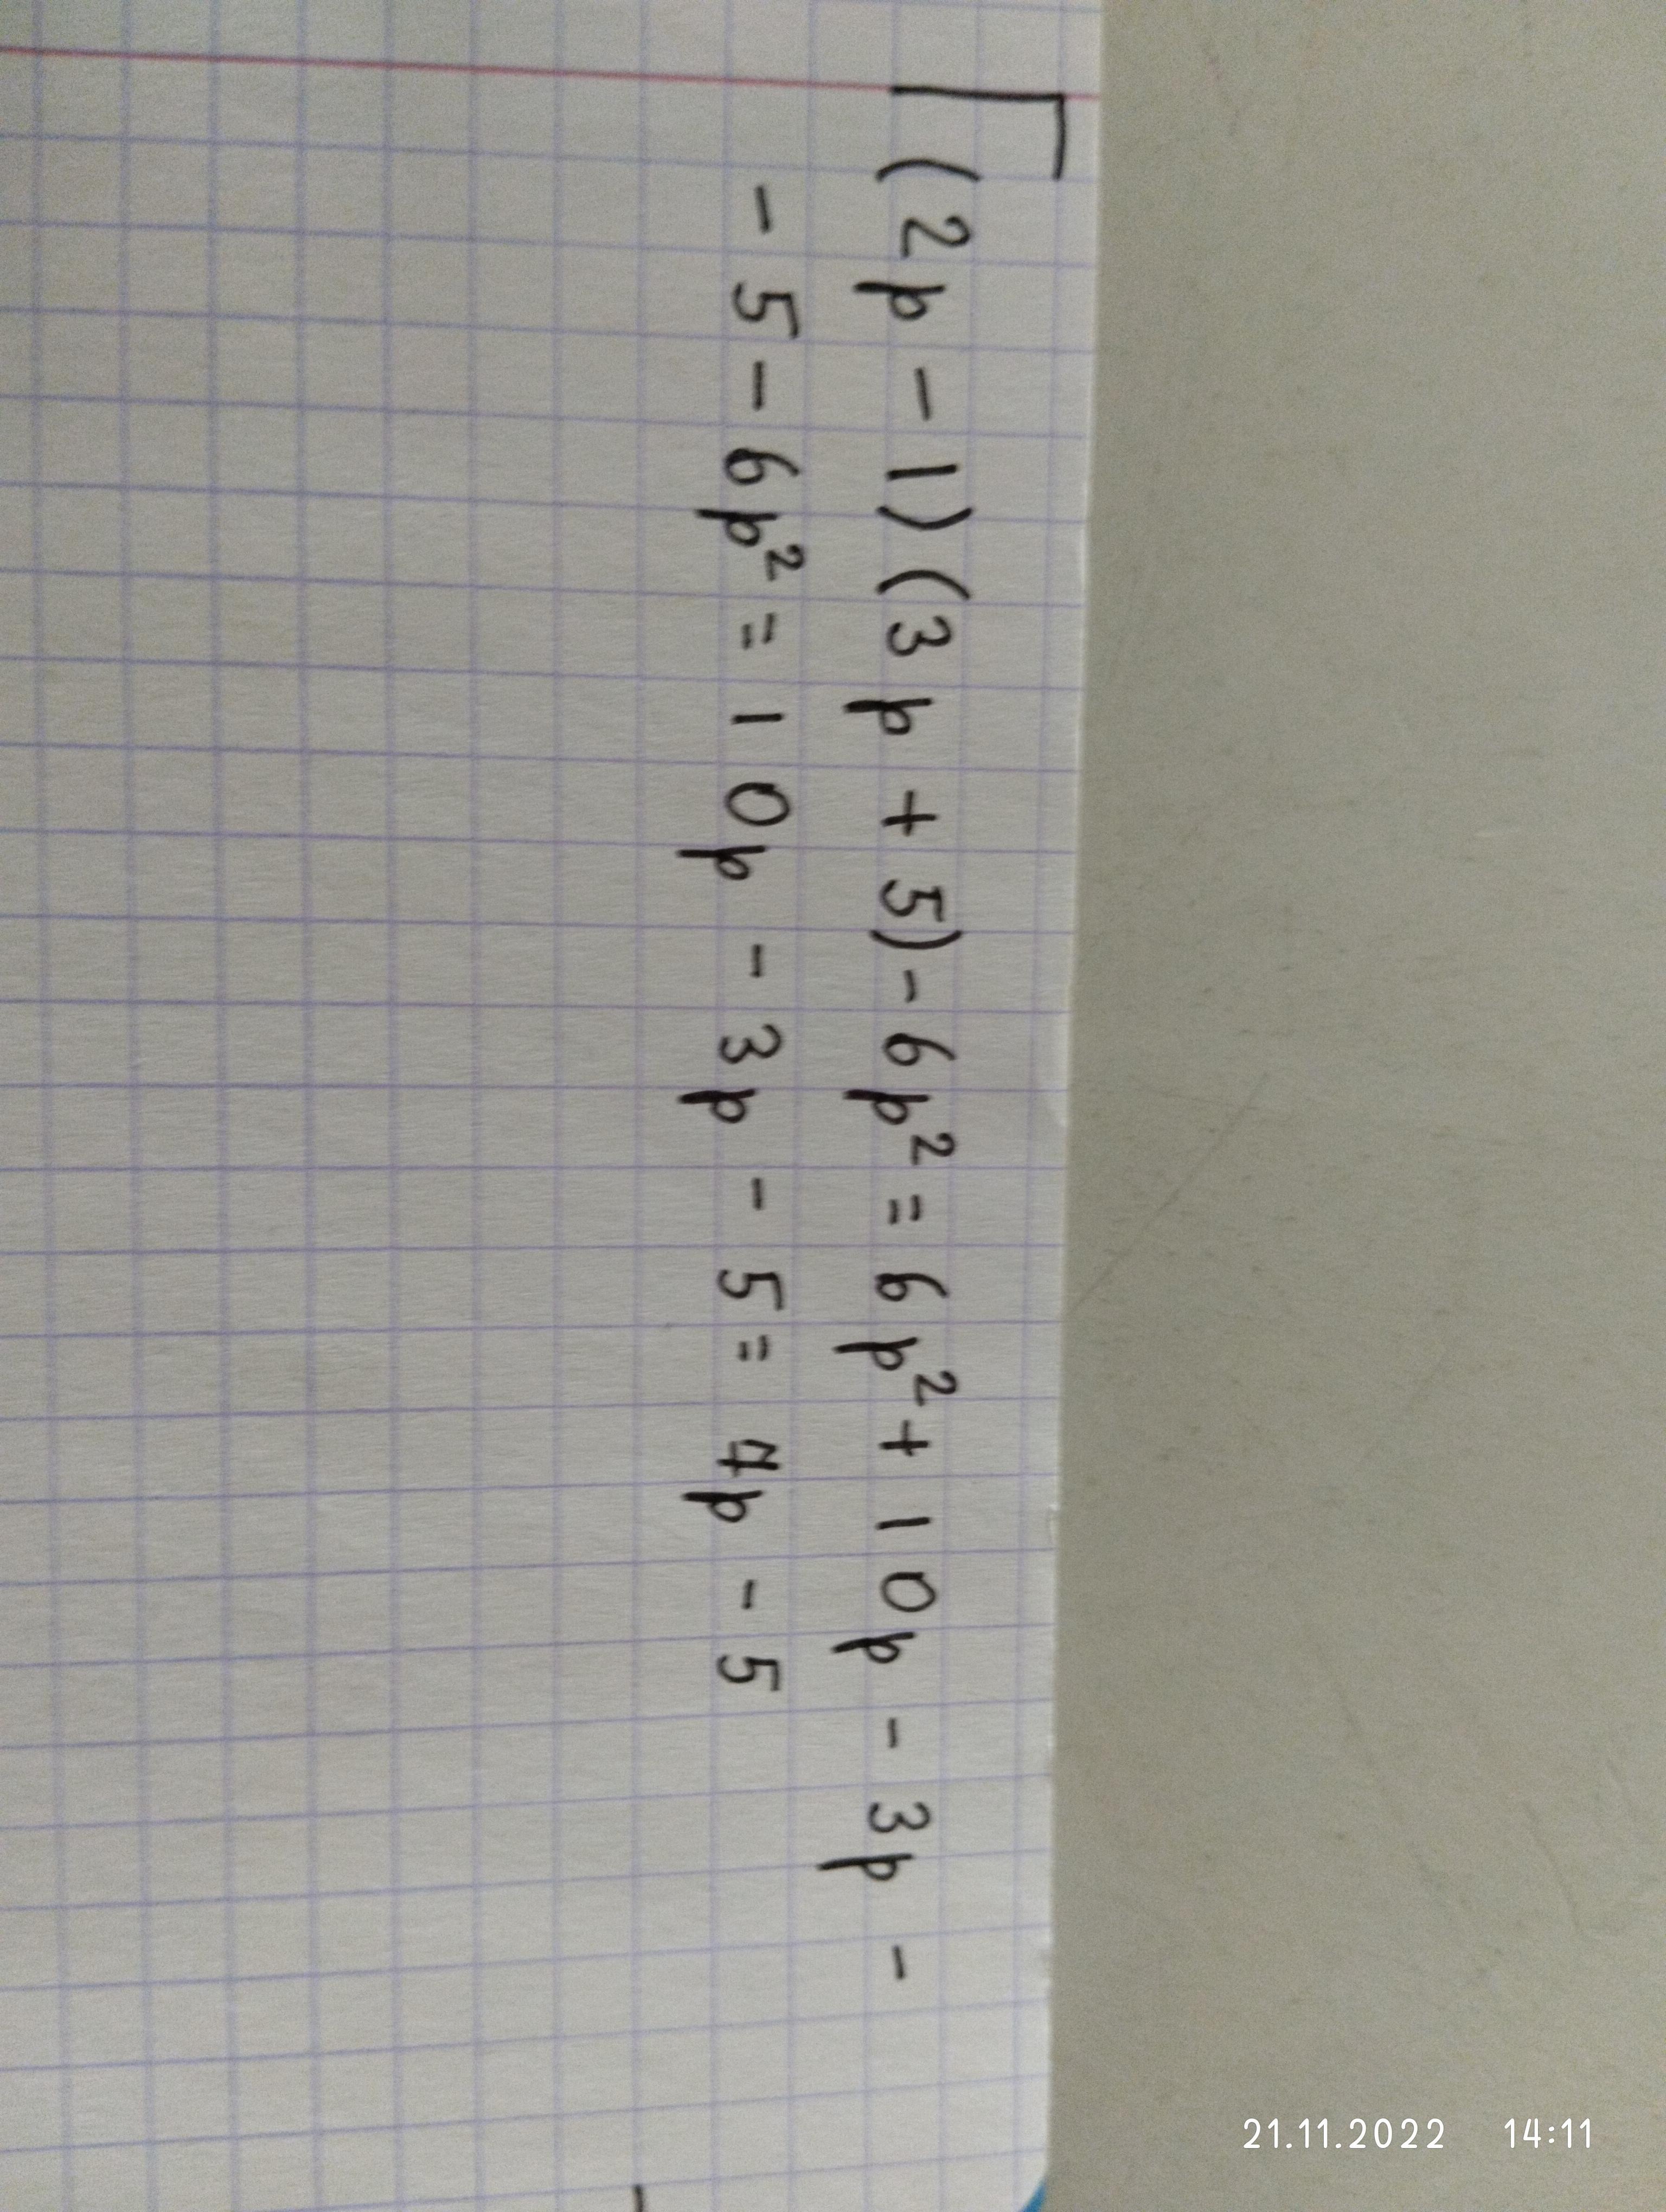 (2p - 1)(3p + 5) - 6p² = 6p² + 10p - 3p -
- 5 - 6p² = 10p - 3p - 5 = 7p - 5
21.11.2022 14:11